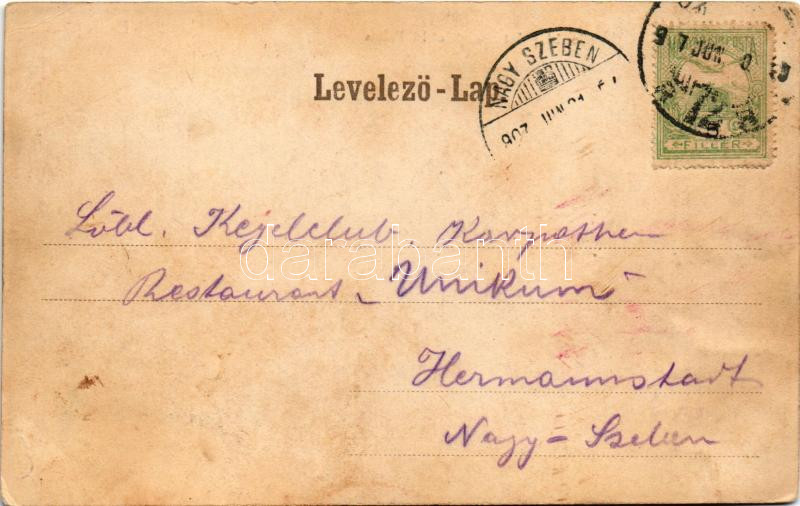 Levelező-Lap
NAGY SZEBEN
907 JUN 21
907 JUN
72
FILLÉR
Löbl. Kegelclub, Karpathen
Restaurant "Unikum"
Hermannstadt
Nagy-Szeben
darabanth